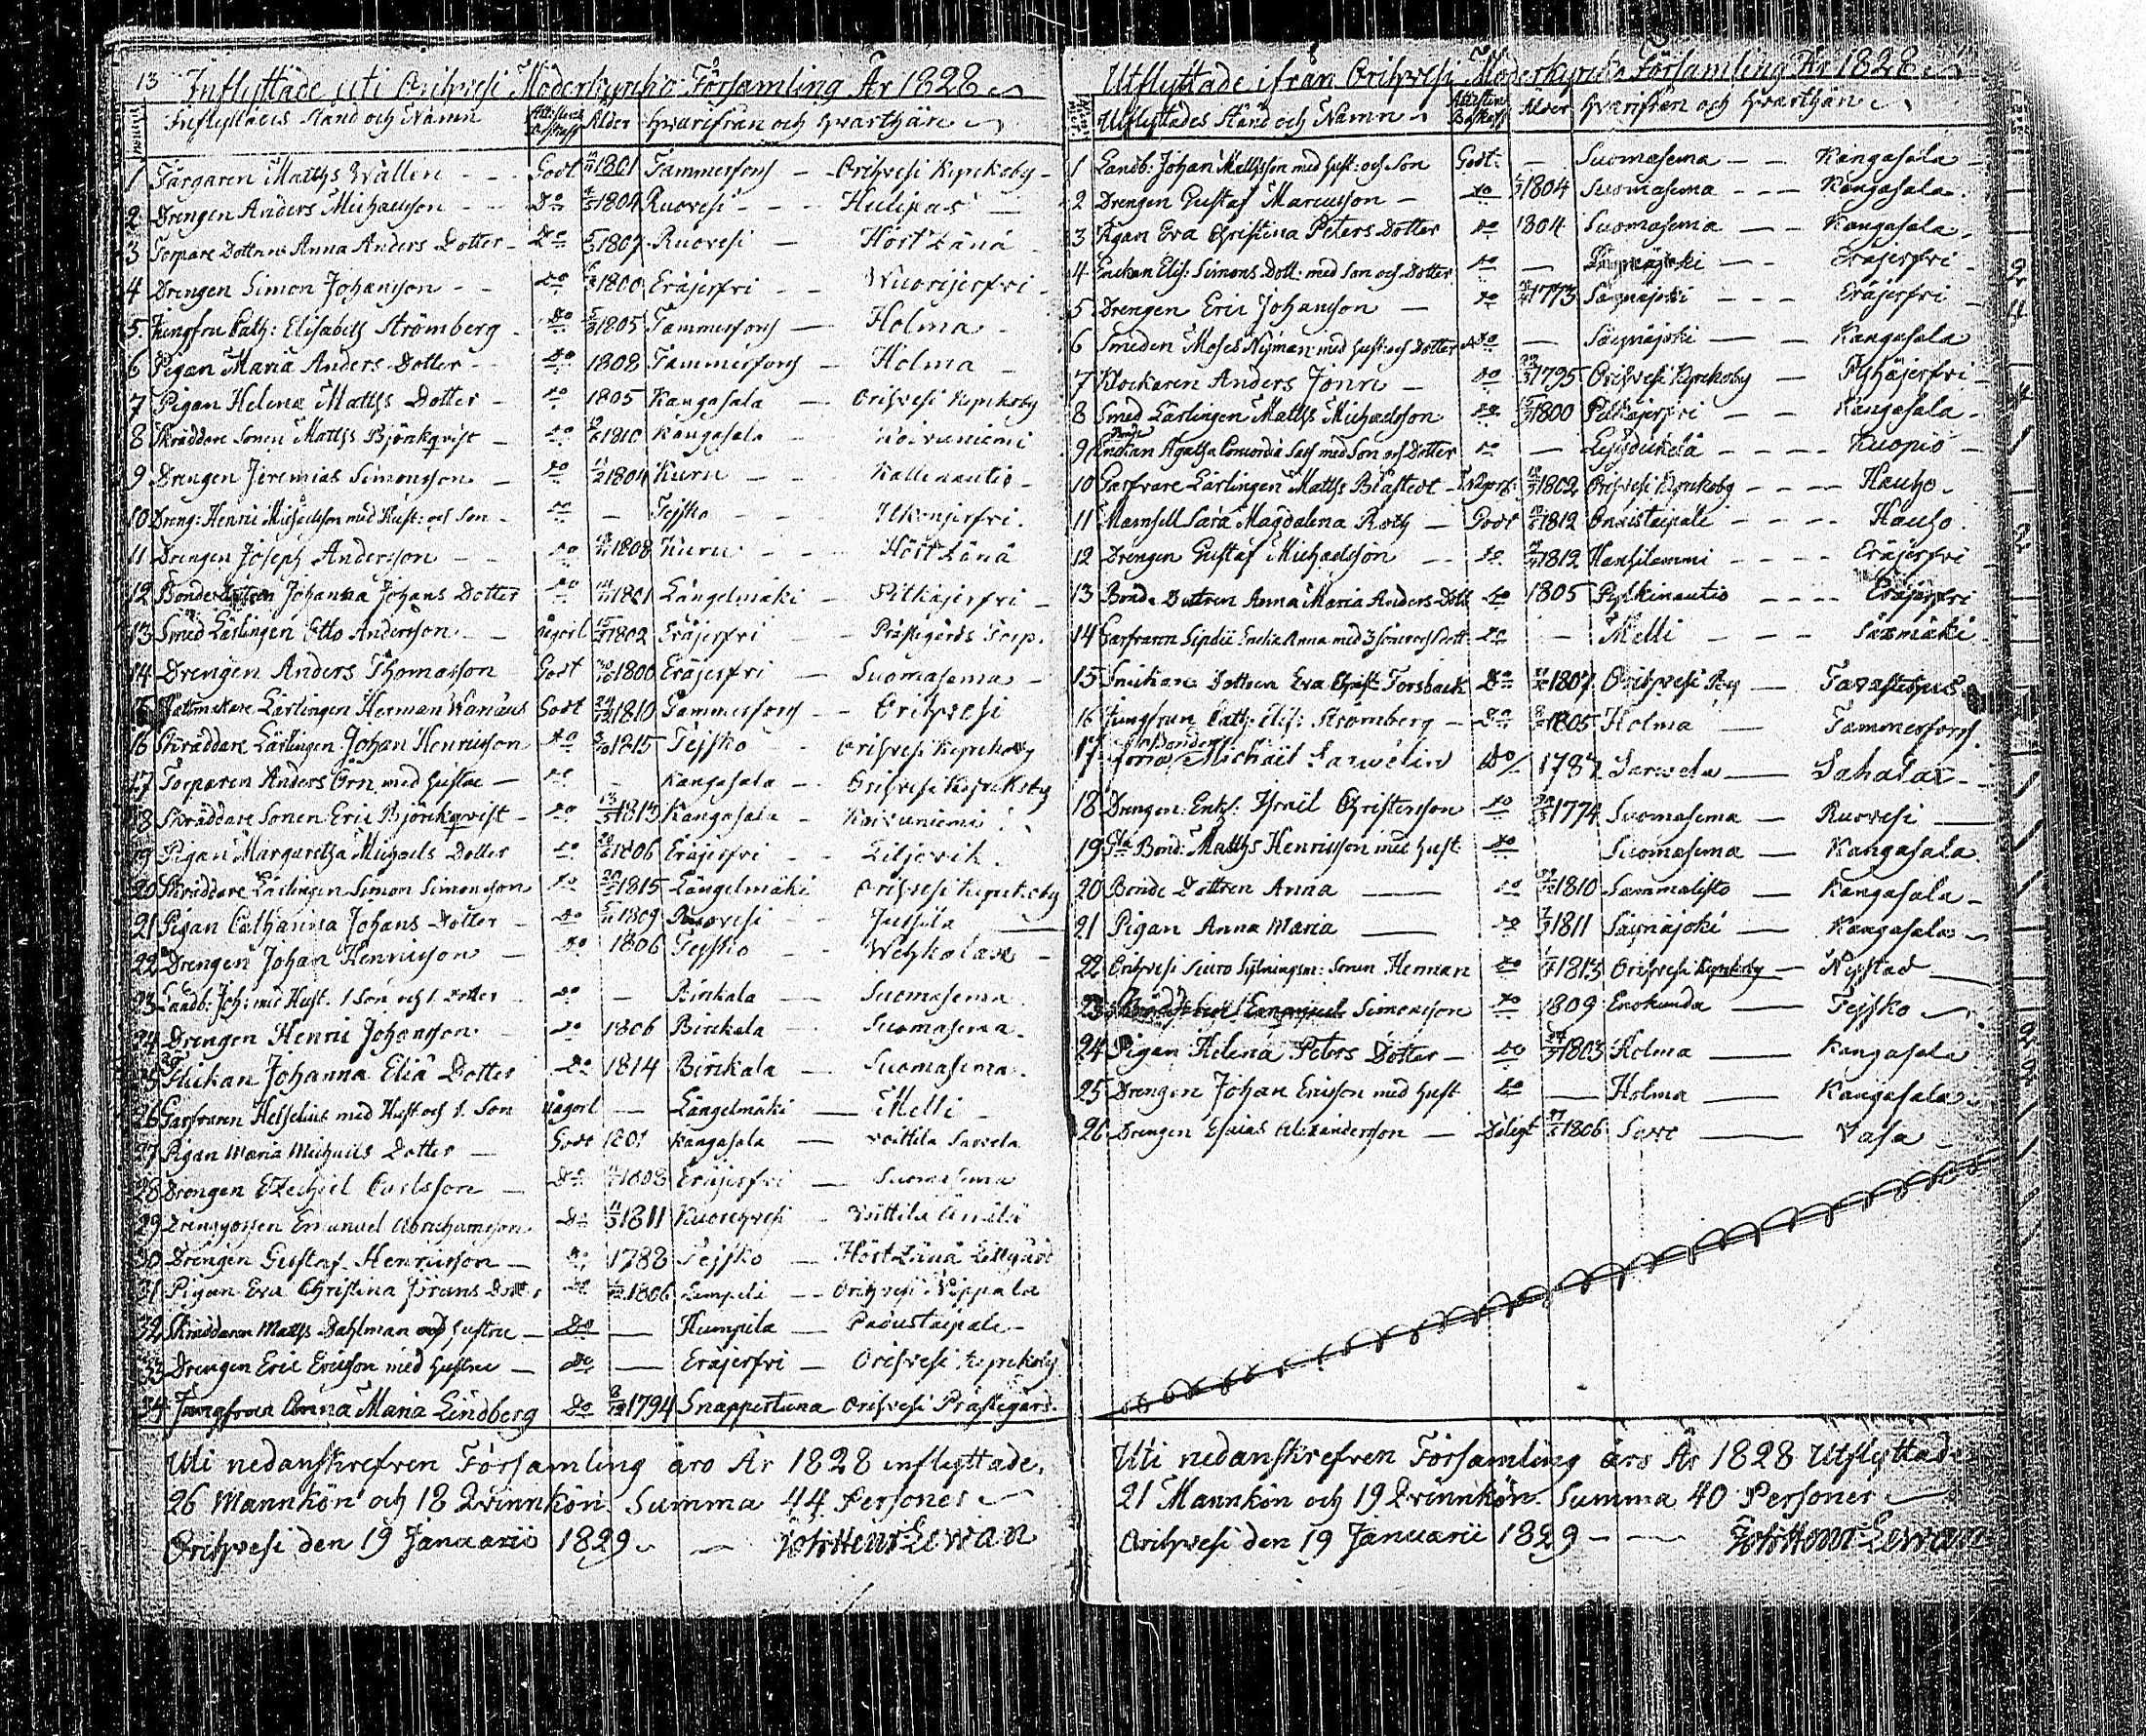 13 Inflyttade uti Orihvesi Moderkyrko Församling År 1828
Inflyttades stånd och Namn Attestens Beskaff Ålder Hvarifrån och Hvarthän
1 Färgaren Matths Wallen Godt 1801 Tammerfors Orihvesi Kyrkoby
2 Drengen Anders Michaelsson Do 1804 Ruovesi Hulipas
3 Torpare Dottren Anna Anders Dotter Do 1807 Ruovesi
4 Drengen Simon Johansson Do 1800 Eräjerfvi Wuorijerfvi
5 Jungfru Cath: Elisabeth Strömberg Do 1805 Tammerfors Holma
6 Pigan Maria Anders Dotter Do 1808 Tammerfors Holma
7 Pigan Helena Matths Dotter Do 1805 Kangasala Orihvesi Kyrkoby
8 Skräddare Sonen Matths Björkqvist Do 1810 Kangasala Koivuniemi
9 Drengen Jeremias Simonsson Do 1804 Kuru Kallenautio
10 Dreng: Henric Michelsson med Hust: och Son Do – Tejsko
11 Drengen Joseph Andersson Do 1808 Kuru
12 Bonde Johanna Johans Dotter Do 1801 Längelmäki Pitkäjerfvi
13 Smed Lärlingen Otto Andersson 1802 Eräjerfvi Prästgårds Torp.
14 Drengen Anders Thomasson Godt 1800 Eräjerfvi Suomasema
15 Hattmakare Lärlingen Herman Godt 1810 Tammerfors Orihvesi
16 Skräddare Lärlingen Johan Henricsson Do 1815 Tejsko Orihvesi Kyrkoby
17 Torparen Anders Örn med Hustru Do – Kangasala Orihvesi Kyrkoby
18 Skräddare Sonen Eric Björkqvist Do 1813 Kangasala Koivuniemi
19 Pigan Margaretha Michaels Dotter Do 1806 Eräjerfvi Liljevik
20 Skräddare Lärlingen Simon Simonsson Do 1815 Längelmäki Orihvesi Kyrkoby
21 Pigan Catharina Johans Dotter Do 1809 Ruovesi Jussila
22 Drengen Johan Henricsson Do 1806 Tejsko
23 Landb: Joh: med Hust. 1 Son och 1. Dotter Do – Birkala Suomasema
24 Drengen Henric Johansson Do 1806 Birkala Suomasema
25 Flickan Johanna Eliæ Dotter Do 1814 Birkala Suomasema
26 Garfvaren Hesselius med Hust och 1. Son — Längelmäki Melli
27 Pigan Maria Michaels Dotter Godt 1801 Kangasala Voittila Sarvela
28 Drengen Ezechiel Carlsson Do 1808 Eräjerfvi Suomasema
29 Drenggossen Emanuel Abrahamsson Do 1811 Kuorehvesi Voittila
30 Drengen Gustaf Henricsson Do 1788 Tejsko
31 Pigan Eva Christina Jörans Dott: Do 1806 Lempele Orihvesi Nippala
32 Skräddaren Matths Dahlman och Hustru Do — Humpila
33 Drengen Eric Ericsson med Hustru Do — Eräjerfvi Orihvesi Kyrkoby
34 Jungfrun Anna Maria Lindberg Do 1794 Snappertuna Orihvesi Prästegård.
Uti nedanskrefven Församling äro År 1828 inflyttade,
26 Mannkön och 18 Qvinnkön. Summa 44 Personer
Orihvesi den 19 Januarii 1829
Utflyttade ifrån Orihvesi Moderkyrko Församling År 1828
Utflyttades Stånd och Namn Attestens Beskaff Ålder Hvarifrån och Hvarthän
1 Landb: Johan Mathsson med Hust: och Son Godt – Suomasema Kangasala
2 Drengen Gustaf Marcusson Do 1804 Suomasema Kangasala
3 Pigan Eva Christina Peters Dotter Do 1804 Suomasema Kangasala
4 Enkan Elis: Simons Dott: med Son och Dotter Do — Säynäjoki Eräjerfvi
5 Drengen Eric Johansson Do 1773 Säynäjoki Eräjerfvi
6 Smeden Moses Nyman med Hust: och Dotter Do — Säynäjoki Kangasala
7 Klockaren Anders Do 1795 Orihvesi Kyrkoby Pyhäjerfvi
8 Smed Lärlingen Matths Michaelsson Do 1800 Pitkäjerfvi Kangasala
9 Enkan Agatha Concordia med Son och Dotter Do — Kuopio
10 Garfvare Lärlingen Matths Blåstedt 1802 Orihvesi Kyrkoby Hauho
11 Mamsell Sara Magdalena Roth Godt 1812 Onnistaipale Hauho
12 Drengen Gustaf Michaelsson Do 1812 Eräjerfvi
13 Bonde Dottren Anna Maria Anders Dott Do 1805 Pylkinautio Eräjerfvi
14 Garfvaren Enka Anna med 3 Söner och Dott Do – Melli Säxmäki
15 Dottren Eva Christ: Forsback Do 1807 Orihvesi By Tavastehus
16 Jungfrun Cath: Elis: Strömberg Do 1805 Holma Tammerfors
17 förra Bonden Michaël Sarvelin Do 1787 Sarvela Sahalax
18 Drengen Enkl: Israel Christersson Do 1774 Suomasema Ruovesi
19 Bond: Matths Henricsson med Hust Do Suomasema Kangasala
20 Bonde Dottren Anna Do 1810 Sammalisto Kangasala
21 Pigan Anna Maria Do 1811 Säynäjoki Kangasala
22 Orihvesi Siuro Sonen Herman Do 1813 Orihvesi Kyrkoby Nystad
23 Simonsson Do 1809 Enokunda Tejsko
24 Pigan Helena Peters Dotter Do 1803 Holma Kangasala
25 Drengen Johan Ericsson med Hust Do — Holma Kangasala
26 Drengen Esaias Alexandersson Dåligt 1806 Savo Vasa
Uti nedanskrefven Församling äro År 1828 Utflyttade
21 Mannkön och 19 Qvinnkön. Summa 40 Personer
Orihvesi den 19 Januarii 1829